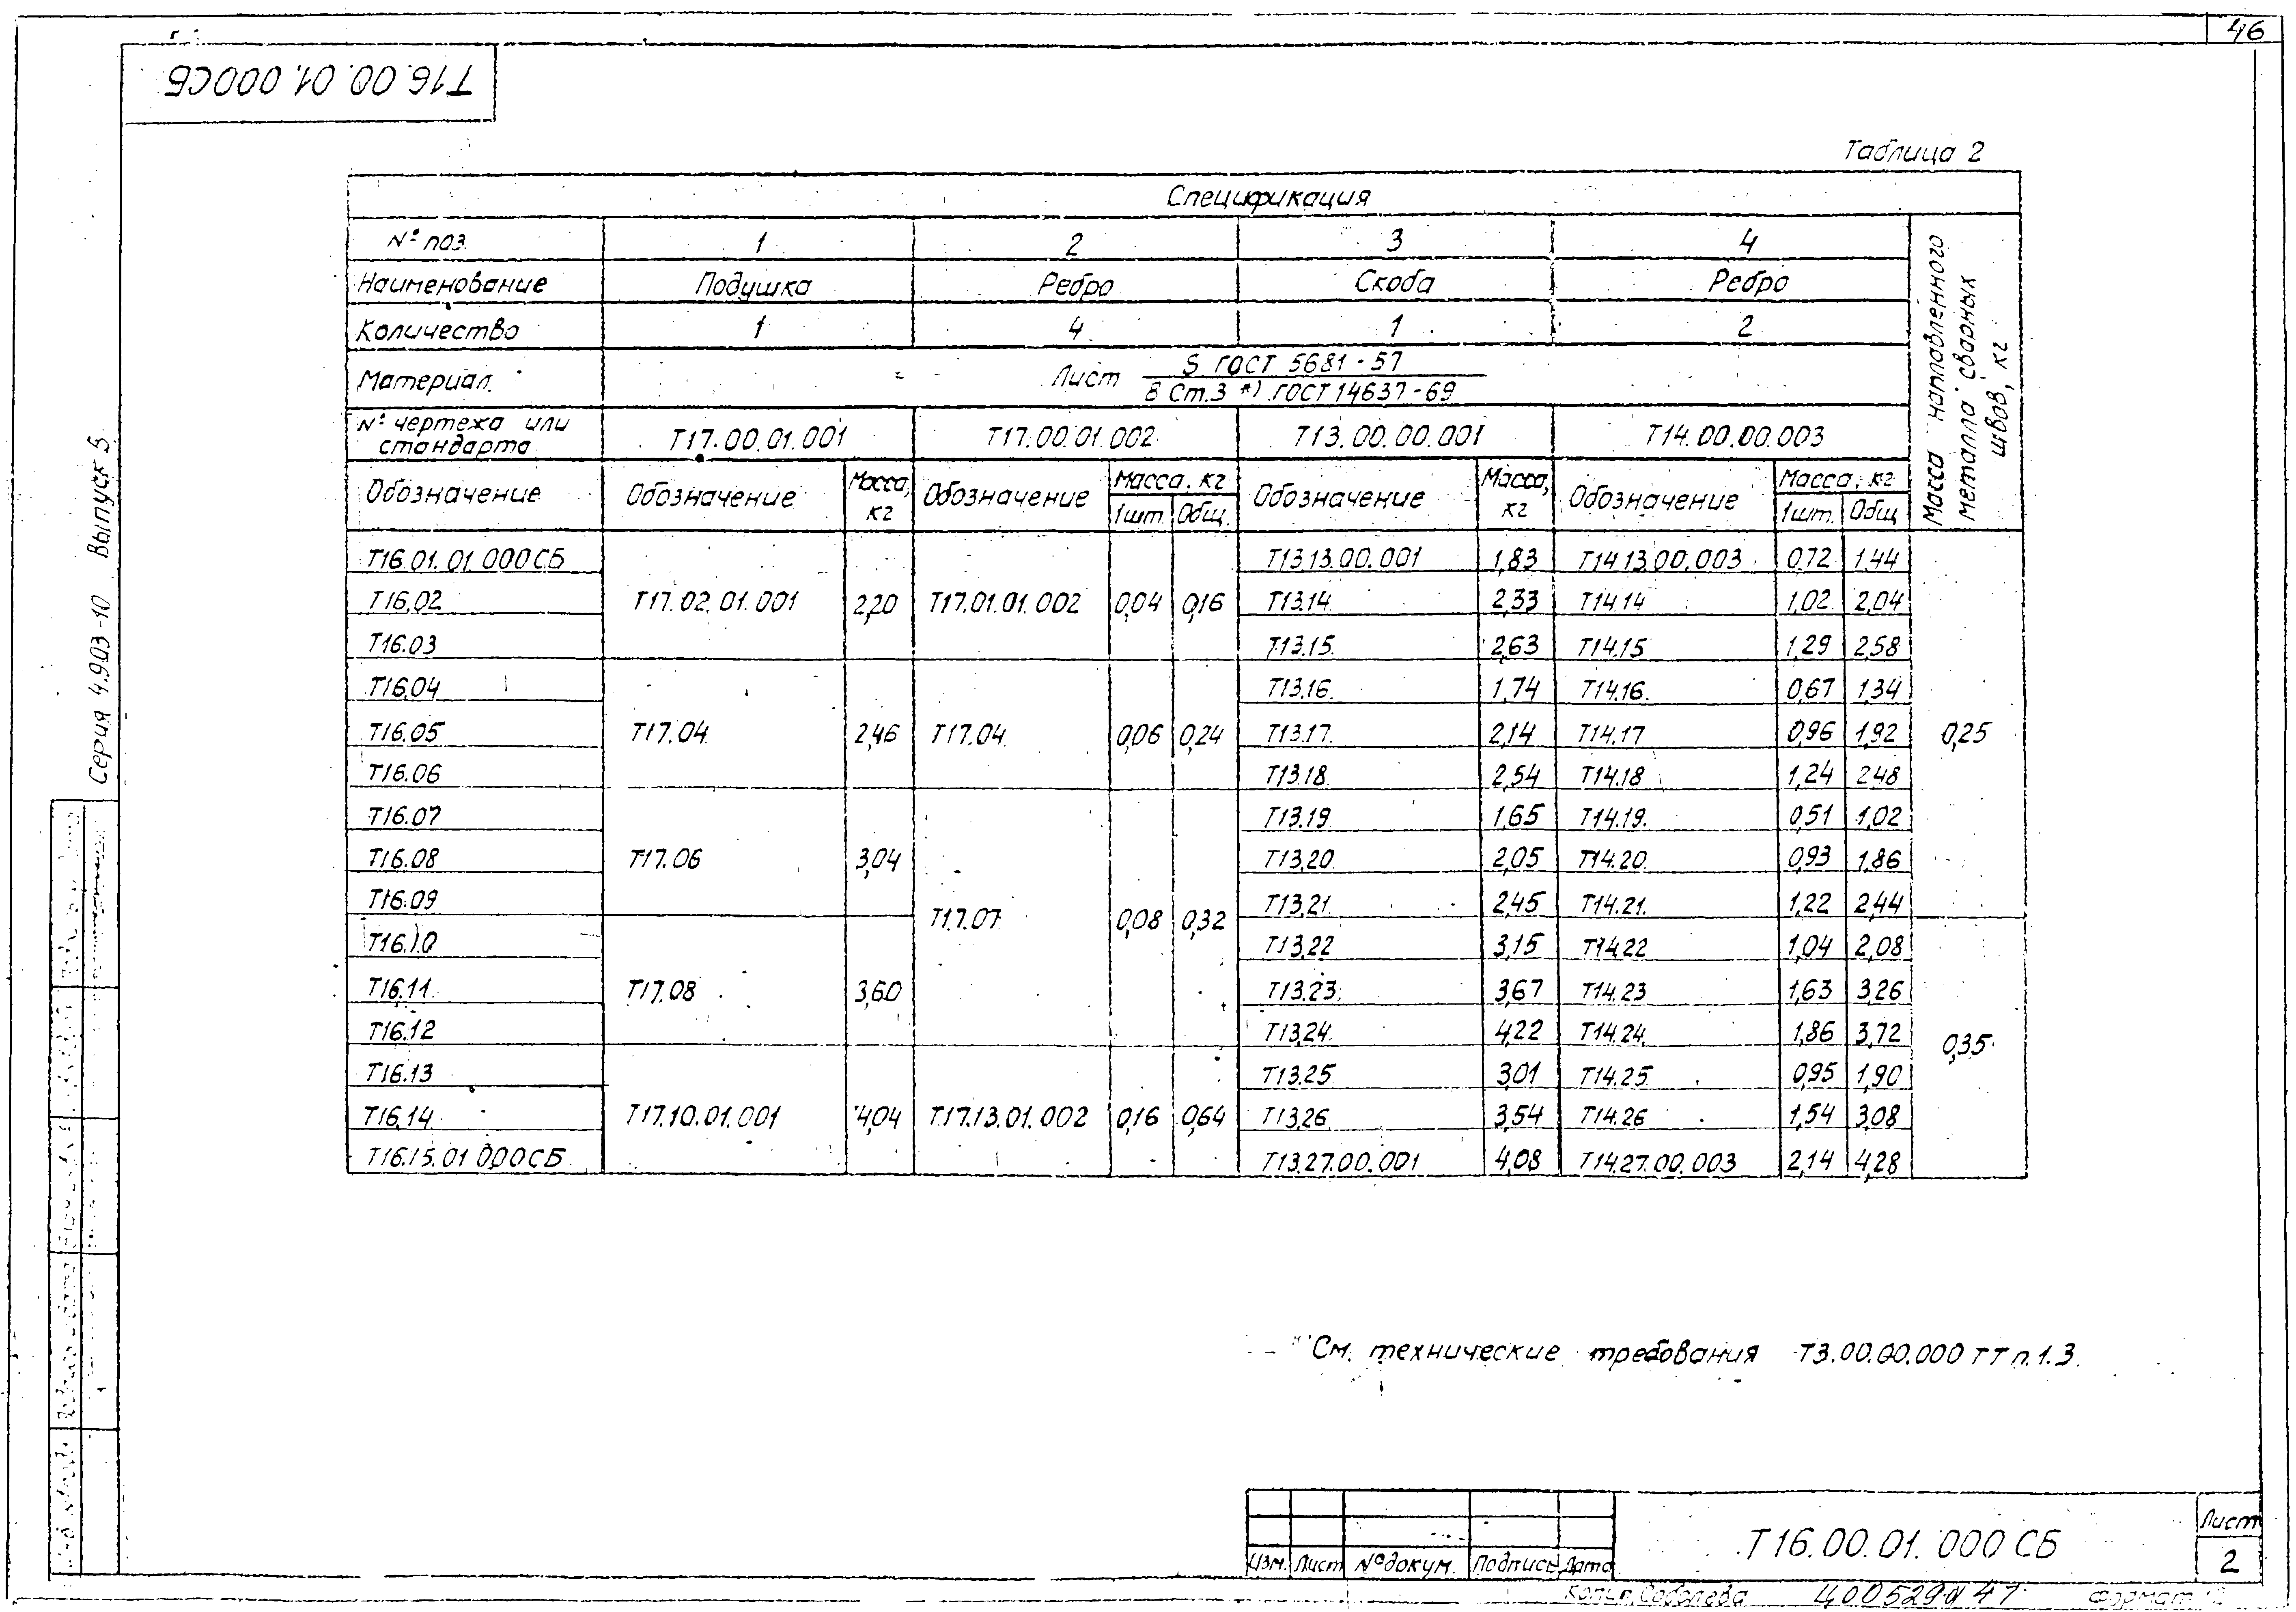 46
Т16.00.01.000СБ
Таблица 2
Спецификация
№ поз. 1 2 3 4
Наименование Подушка Ребро Скоба Ребро
Количество 1 4 1 2
Материал Лист S ГОСТ 5681-57
В Ст.3 *) ГОСТ 14637-69
№ чертежа или
стандарта Т17.00.01.001 Т17.00.01.002 Т13.00.00.001 Т14.00.00.003
Масса наплавленного
металла сварных
швов, кг
Обозначение Обозначение Масса, кг Обозначение Масса, кг 1шт. Общ. Обозначение Масса, кг Обозначение Масса, кг 1шт. Общ
Т16.01.01.000СБ Т13.13.00.001 1,83 Т14.13.00.003 0,72 1,44
Т16.02 Т17.02.01.001 2,20 Т17.01.01.002 0,04 0,16 Т13.14 2,33 Т14.14 1,02 2,04
Т16.03 Т13.15 2,63 Т14.15 1,29 2,58
Т16.04 Т13.16 1,74 Т14.16 0,67 1,34
Т16.05 Т17.04 2,46 Т17.04 0,06 0,24 Т13.17 2,14 Т14.17 0,96 1,92 0,25
Т16.06 Т13.18 2,54 Т14.18 1,24 2,48
Т16.07 Т13.19 1,65 Т14.19 0,51 1,02
Т16.08 Т17.06 3,04 Т13.20 2,05 Т14.20 0,93 1,86
Т16.09 Т17.07 0,08 0,32 Т13.21 2,45 Т14.21 1,22 2,44
Т16.10 Т13.22 3,15 Т14.22 1,04 2,08
Т16.11 Т17.08 3,60 Т13.23 3,67 Т14.23 1,63 3,26
Т16.12 Т13.24 4,22 Т14.24 1,86 3,72 0,35
Т16.13 Т13.25 3,01 Т14.25 0,95 1,90
Т16.14 Т17.10.01.001 4,04 Т17.13.01.002 0,16 0,64 Т13.26 3,54 Т14.26 1,54 3,08
Т16.15.01.000СБ Т13.27.00.001 4,08 Т14.27.00.003 2,14 4,28
Серия 4.903-10 Выпуск 5
См. технические требования Т3.00.00.000 ТТ п.1.3.
Изм. Лист № докум. Подпись Дата
Т16.00.01.000 СБ
Лист
2
Копир. Соболева Формат